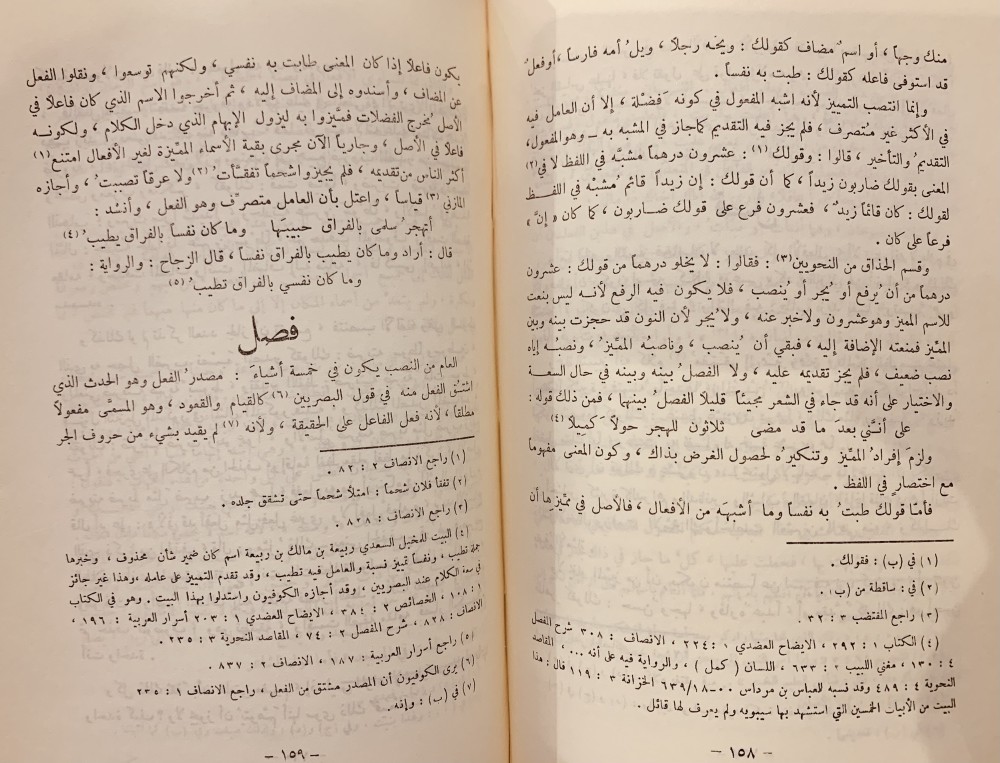 منك وجهاً ، أو اسمٌ مضاف كقولك : ويحَه رجلاً ، ويلُ أمه فارساً ، أوفعلٌ
قد استوفى فاعله كقولك : طبت به نفساً .
وإنما انتصب التمييز لأنه اشبه المفعول في كونه فَضْلة ، إلا أن العامل فيه
في الأكثر غير مُتصرف ، فلم يجز فيه التقديم كما جاز في المشبه به ــ وهو المفعول،
التقديمُ والتأخير ، قالوا : وقولك (١) : عشرون درهماً مشبَّه في اللفظ لا في (٢)
المعنى بقولك ضاربون زيداً ، كما أن قولك : إن زيداً قائم مُشبَّه في اللفـظ
لقولك : كان قائماً زيدٌ ، فعشرون فرع على قولك ضـاربون ، كما كان « إنّ »
فرعاً على كان .
وقسم الحذاق من النحويين (٣) : فقالوا : لا يخلو درهماً من قولك : عشرون
درهماً من أن يُرفع أو يُجر أو يُنصب ، فلا يكون فيه الرفع لأنـه ليس بنعت
للاسم المميز وهو عشرون ولا خبر عنه ، ولا يُجر لأن النون قد حجزت بينه وبين
المميّز فمنعته الإضافة إليه ، فبقي أن يُنصب ، وناصبُه المميِّزُ ، ونصبُه إياه
نصب ضعيف ، فلم يجز تقديمه عليه ، ولا الفصلُ بينه وبينه في حال السعـة
والاختيار على أنه قد جاء في الشعر مجيئاً قليلاً الفصلُ بينهما ، فمن ذلك قوله :
على أنَّني بعدَ ما قد مضى     ثلاثون للهجر حولاً كَمِيلاً (٤)
ولزمَ إفرادُ المميِّز وتنكيرُه لحصول الغرض بذاك ، وكون المعنى مفهوماً
مع اختصارٍ في اللفظ .
فأمّا قولك طبتُ به نفساً وما أشبهَه من الأفعال ، فالأصل في مميِّزها أن
(١) في (ب) : فقولك .
(٢) في : ساقطة من (ب) .
(٣) راجع المقتضب ٣ : ٣٢ .
(٤) الكتاب ١ : ٢٩٢ ، الايضاح العضدي ١ : ٢٢٤ ، الانصاف : ٣٠٨ شرح المفصل
٤ : ١٣٠ ، مغني اللبيب ٢ : ٦٣٣ ، اللسان ( كمل ) ، والرواية فيه على أنه ... ، المقاصد
النحوية ٤ : ٤٨٩ وقد نسبه للعباس بن مرداس ٠٠ـ٦٣٩/١٨ الخزانة ٣ : ١١٩ قال : هذا
البيت من الأبيات الخمسين التي استشهد بها سيبويه ولم يعرف لها قائل .
ــ ١٥٨ ــ
يكون فاعلاً إذا كان المعنى طابت به نفسي ، ولكنهم توسعوا ، ونقلوا الفعل
عن المضاف ، وأسندوه إلى المضاف إليه ، ثم أخرجوا الاسم الذي كان فاعلاً في
الأصل مُخرج الفضلات فميَّزوا به ليزول الإبهام الذي دخل الكلام ، ولكونـه
فاعلاً في الأصل ، وجارياً الآن مجرى بقية الأسماء المميِّزة لغير الأفعال امتنع (١)
أكثر الناس من تقديمه ، فلم يجيزوا شحماً تفقـأتُ (٢) ولا عرقاً تصببتُ ، وأجازه
المازني (٣) قياساً ، واعتل بأن العامل متصرّف وهو الفعل ، وأنشد :
أتهجرُ سلمى بالفراق حبيبَها     وما كان نفساً بالفراق يطيبُ (٤)
قال : أراد وما كان يطيب بالفراق نفساً ، قال الزجاج : والرواية :
وما كان نفسي بالفراق تطيبُ (٥)
فصل
العام من النصب يكون في خمسة أشياءَ : مصدرُ الفعل وهو الحدث الذي
اشتُق الفعل منه في قول البصريين (٦) كالقيام والقعود ، وهو المسمَّى مفعولاً
مطلقاً ، لأنه فعل الفاعل على الحقيقة ، ولأنه (٧) لم يقيد بشيء من حروف الجر
(١) راجع الانصاف ٢ : ٨٢ .
(٢) تفقأ فلان شحماً : امتلأ شحماً حتى تشقق جلده .
(٣) راجع الانصاف : ٨٢٨ .
(٤) البيت للمخبل السعدي ربيعة بن مالك بن ربيعة اسم كان ضمير شأن محذوف ، وخبرها
جملة تطيب ، ونفساً تمييز نسبة والعامل فيه تطيب ، وقد تقدم التمييز على عامله ، وهذا غير جائز
في سعة الكلام عند البصريين ، وقد أجازه الكوفيون واستدلوا بهذا البيت . وهو في الكتاب
١ : ١٠٨ ، الخصائص ٢ : ٣٨٤ ، الايضاح العضدي ١ : ٢٠٣ أسرار العربية : ١٩٦ ،
الانصاف : ٨٢٨ ، شرح المفصل ٢ : ٧٤ ، المقاصد النحوية ٣ : ٢٣٥ .
(٥) راجع أسرار العربية : ١٨٧ ، الانصاف ٢ : ٨٣٧ .
(٦) يرى الكوفيون أن المصدر مشتق من الفعل ، راجع الانصاف ١ : ٢٣٥
(٧) في (ب) : وإنه .
ــ ١٥٩ ــ